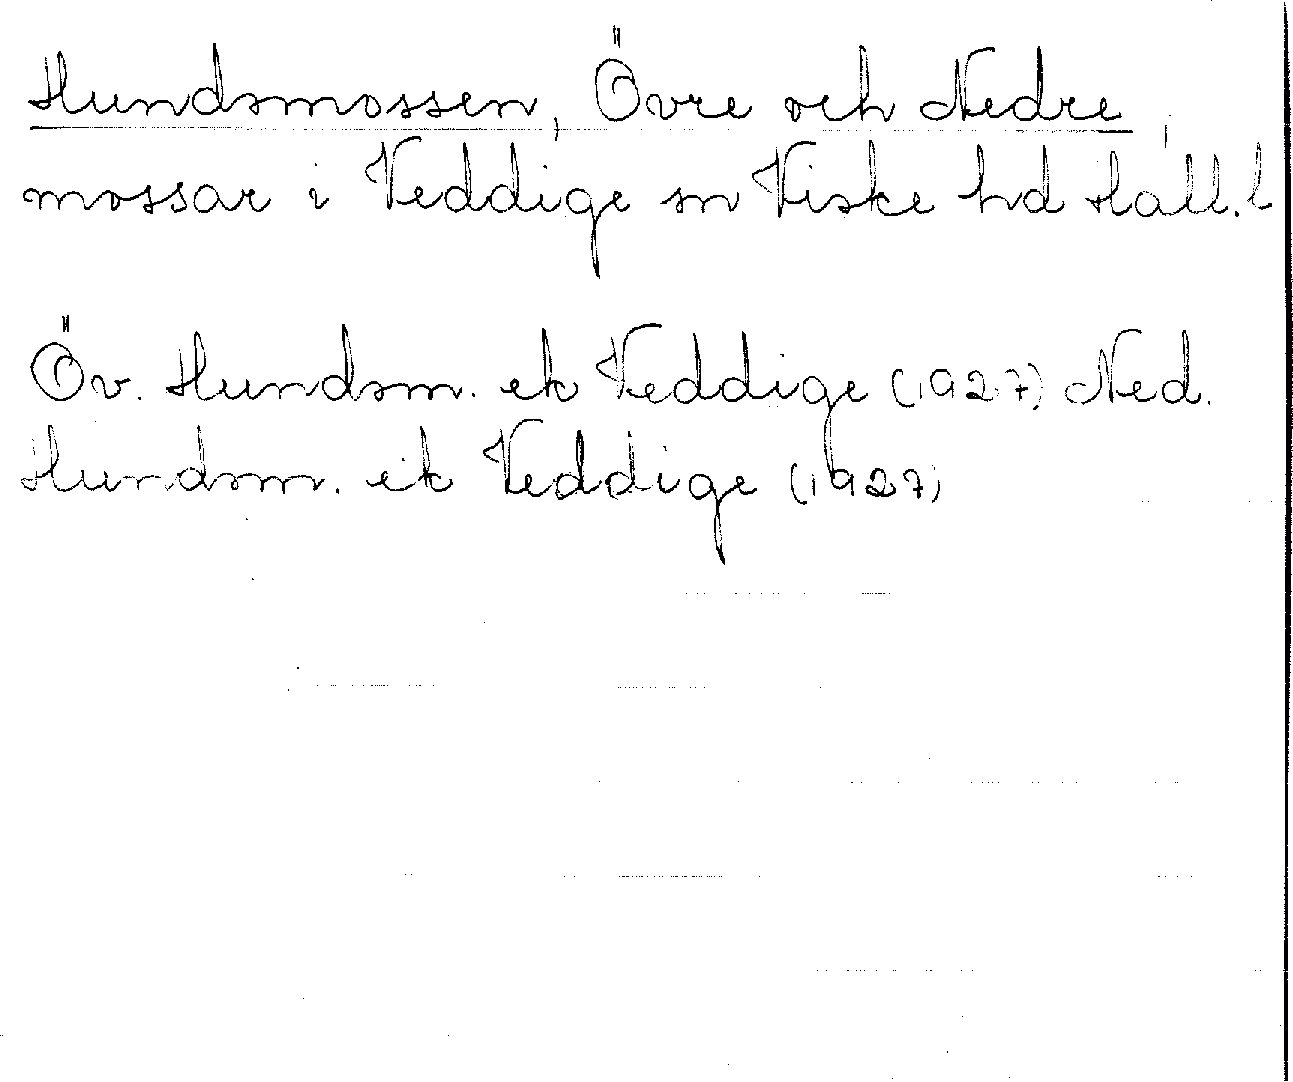 Hundsmossen, Övre och Nedre,
mossar i Veddige sn Viske hd Hall. l
Öv. Hundsm. ek Veddige (1927) Ned.
Hundsm. ek Veddige (1927)